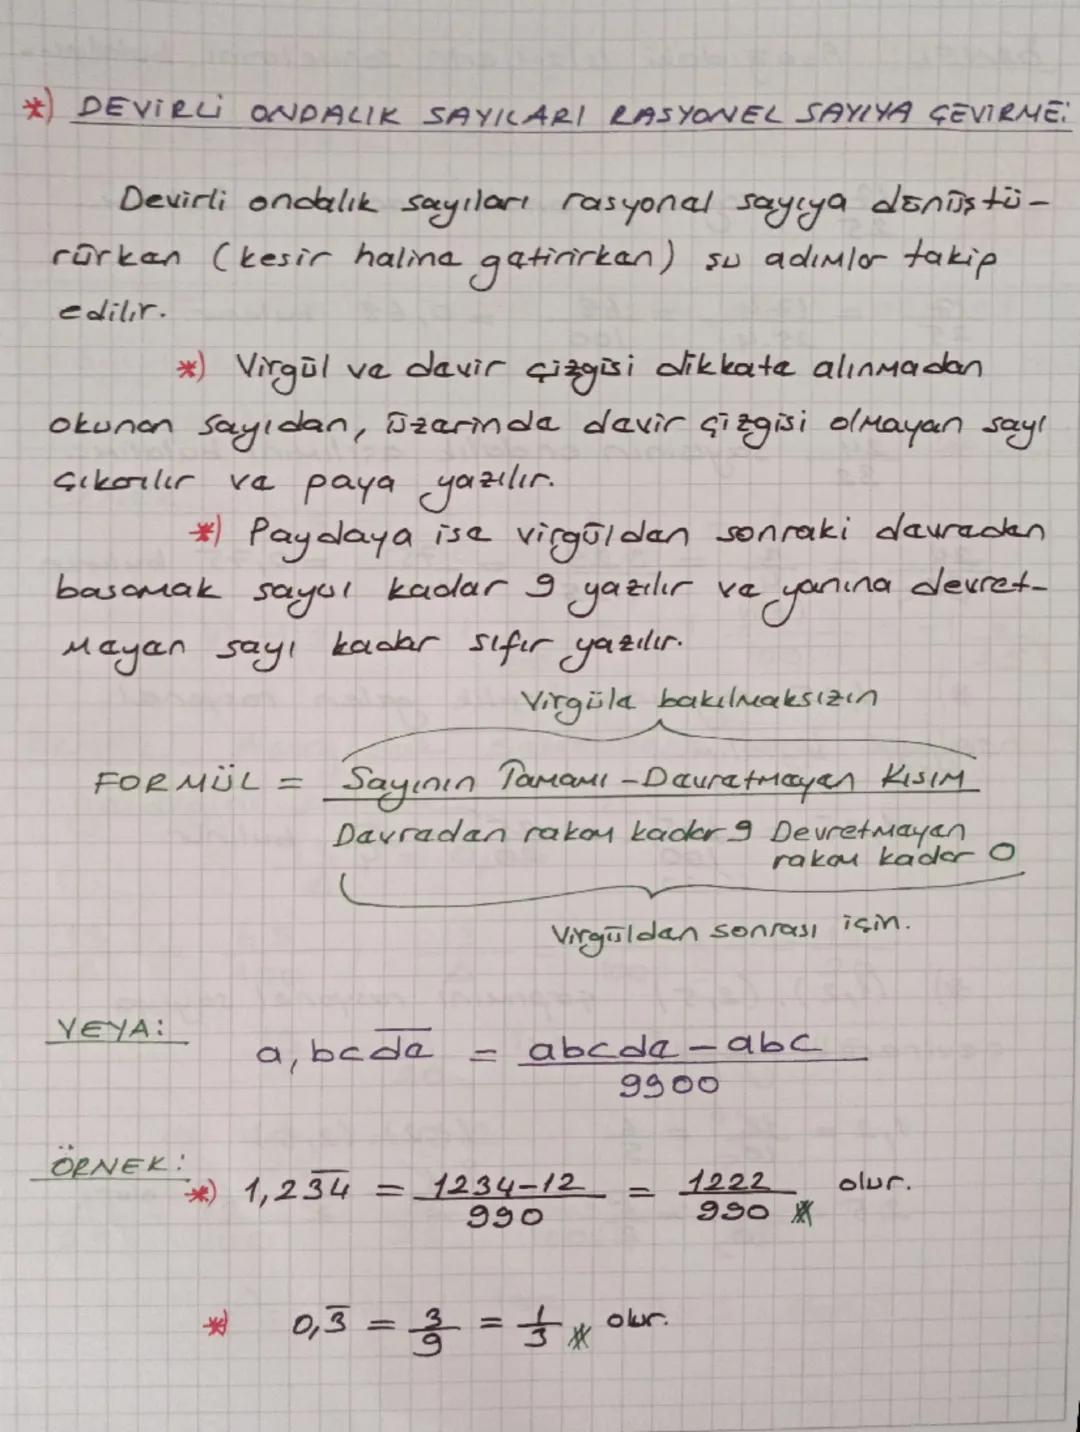 *) DEVİRLİ ONDALIK SAYILARI RASYONEL SAYIYA ÇEVİRME:
Devirli ondalık sayıları rasyonal sayıya dönüştü-
rürken (kesir haline getirirken) şu adımlar takip
edilir.
*) Virgül ve devir çizgisi dikkate alınmadan
okunan sayıdan, üzerinde devir çizgisi olmayan sayı
çıkarılır ve paya yazılır.
*) Paydaya ise virgülden sonraki devreden
basamak sayısı kadar 9 yazılır ve yanına devret-
meyen sayı kadar sıfır yazılır.
Virgüle bakılmaksızın
FORMÜL = Sayının Tamamı - Devretmeyen Kısım
Devreden rakam kadar 9 Devretmeyen
rakam kadar 0
Virgülden sonrası için.
VEYA:
a,bc\overline{de} = \frac{abcde - abc}{9900}
ÖRNEK:
*) 1,2\overline{34} = \frac{1234-12}{990} = \frac{1222}{990} olur.
*) 0,\overline{3} = \frac{3}{9} = \frac{1}{3} olur.